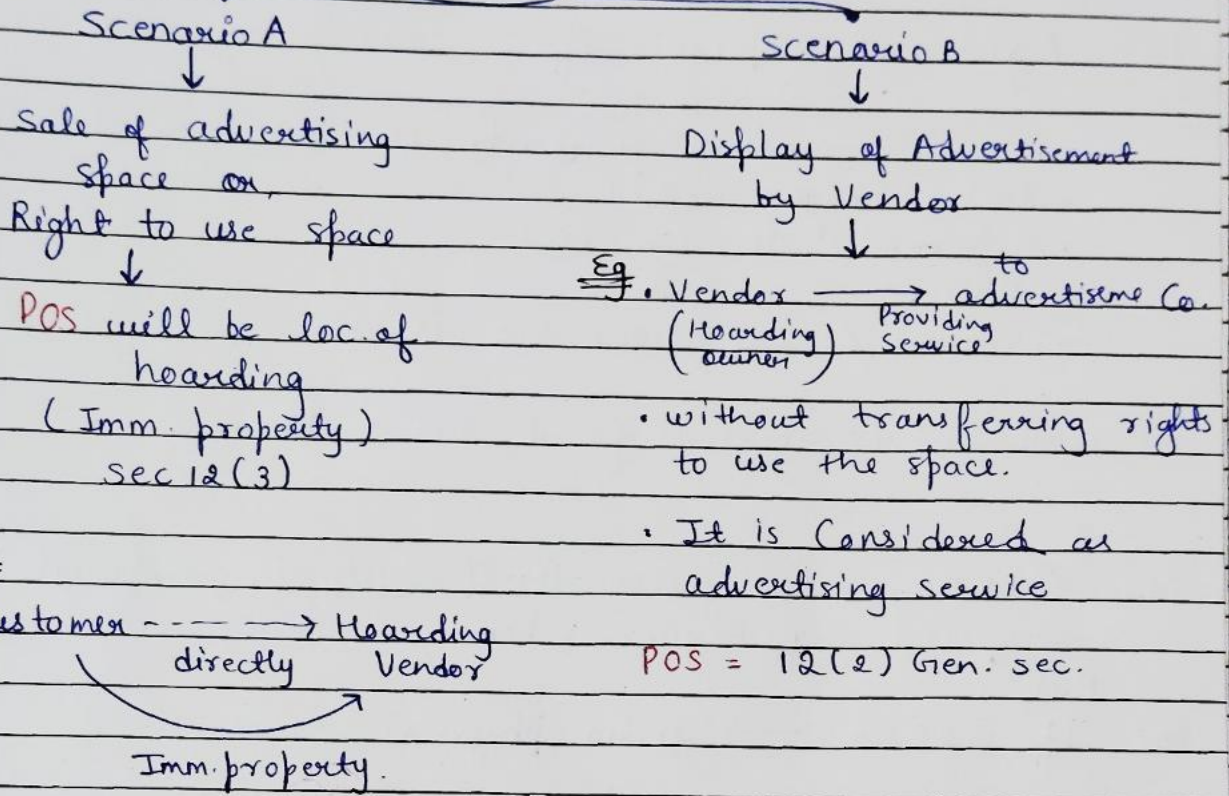 Scenario A
↓
Sale of advertising
space or,
Right to use space
↓
POS will be loc. of
hoarding
(Imm. property)
Sec 12(3)
ustomer - - - - → Hoarding
directly Vendor
Imm. property.
Scenario B
↓
Display of Advertisement
by Vendor
↓
Eg. • Vendor → to advertiseme Co.
(Hoarding owner) Providing Service
• without transferring rights
to use the space.
• It is Considered as
advertising service
POS = 12(2) Gen. sec.